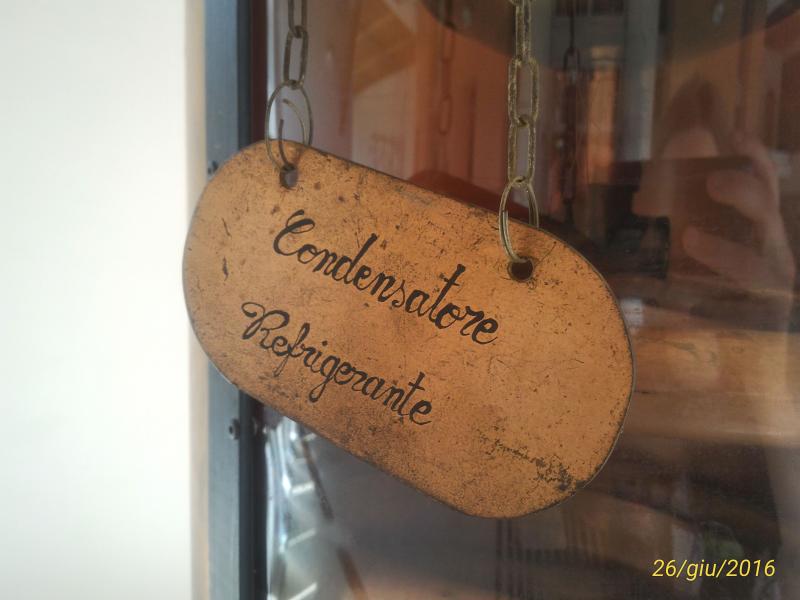 Condensatore
Refrigerante
26/giu/2016